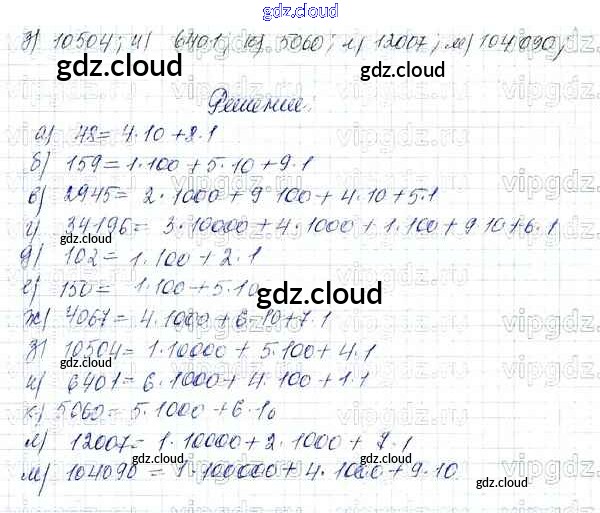 gdz.cloud
з) 10504; и) 6401; к) 5060; л) 12007; м) 104090;
gdz.cloud gdz.cloud
Решение:
а) 48 = 4·10 + 8·1
б) 159 = 1·100 + 5·10 + 9·1
в) 2945 = 2·1000 + 9·100 + 4·10 + 5·1
г) 34196 = 3·10000 + 4·1000 + 1·100 + 9·10 + 6·1
gdz.cloud gdz.cloud
д) 102 = 1·100 + 2·1
е) 150 = 1·100 + 5·10
gdz.cloud
ж) 4067 = 4·1000 + 6·10 + 7·1
з) 10504 = 1·10000 + 5·100 + 4·1
и) 6401 = 6·1000 + 4·100 + 1·1
к) 5060 = 5·1000 + 6·10
л) 12007 = 1·10000 + 2·1000 + 7·1
gdz.cloud gdz.cloud
м) 104090 = 1·100000 + 4·1000 + 9·10
gdz.cloud
vipgdz